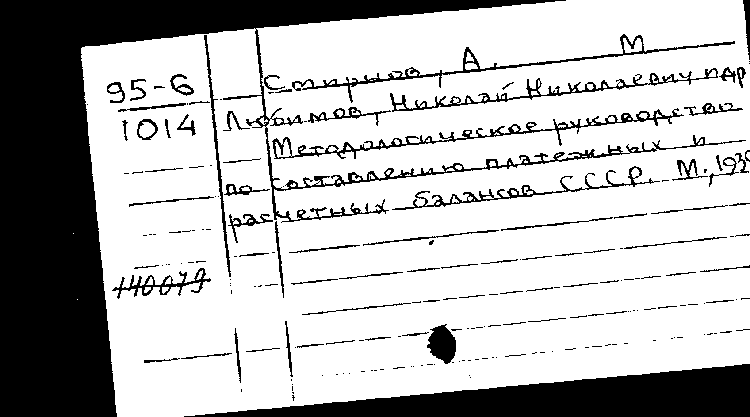 95-6
1014
Смирнов, А. М
Любимов, Николай Николаевич и др
Методологическое руководство
по составлению платежных и
расчетных балансов СССР. М.,
140079